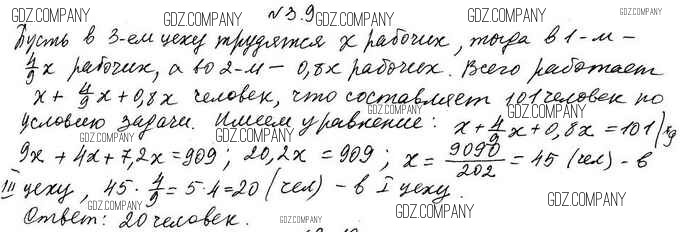 №3.9
Пусть в 3-ем цеху трудятся x рабочих, тогда в 1-м –
4/9 x рабочих, а во 2-м – 0,8x рабочих. Всего работает
x + 4/9 x + 0,8x человек, что составляет 101 человек по
условию задачи. Имеем уравнение: x + 4/9 x + 0,8x = 101 |·9
9x + 4x + 7,2x = 909; 20,2x = 909; x = 9090/202 = 45 (чел) – в
III цеху, 45 · 4/9 = 5·4 = 20 (чел) – в I цеху.
Ответ: 20 человек.
GDZ.COMPANY
GDZ.COMPANY
GDZ.COMPANY
GDZ.COMPANY
GDZ.COMPANY
GDZ.COMPANY
GDZ.COMPANY
GDZ.COMPANY
GDZ.COMPANY
GDZ.COMPANY
GDZ.COMPANY
GDZ.COMPANY
GDZ.COMPANY
GDZ.COMPANY